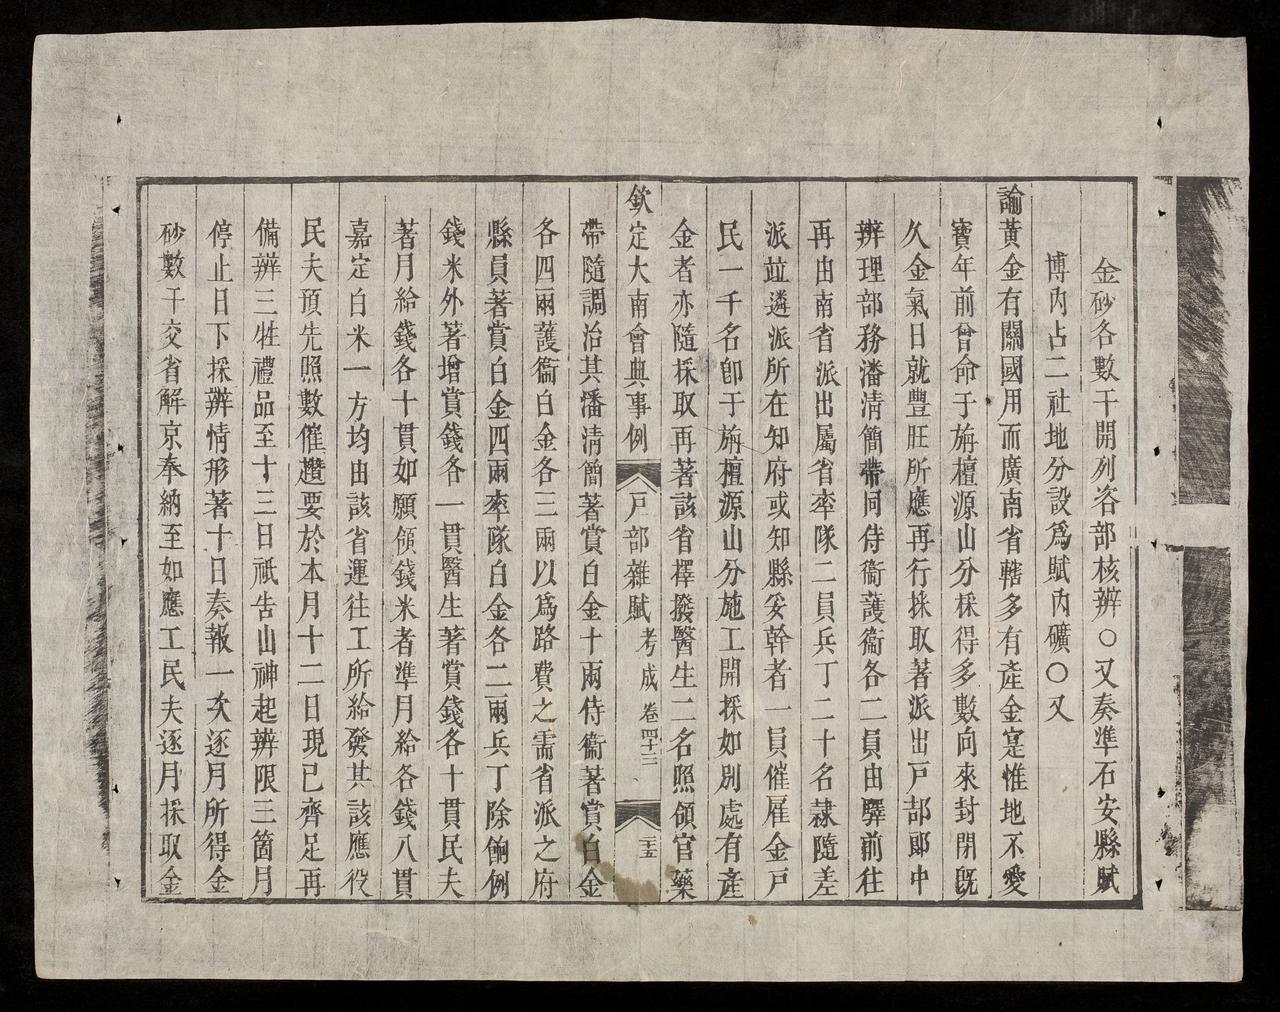 金砂各數干開列咨部核辨〇又奏準石安縣賦
博內占二社地分設爲賦內礦〇又
諭黃金有關國用而廣南省轄多有產金寔惟地不愛
寶年前曾命于旃檀源山分採得多數向來封閉旣
久金氣日就豐旺所應再行採取著派出戸部郞中
辨理部務潘清簡帶同侍衞護衞各二員由驛前往
再由南省派出屬省率隊二員兵丁二十名隷隨差
派竝遴派所在知府或知縣妥幹者一員催雇金戸
民一千名卽于旃檀源山分施工開採如別處有產
金者亦隨採取再著該省擇撥醫生二名照領官藥
欽定大南會典事例 戸部雜賦 考成 卷四十三 二十五
帶隨調治其潘清簡著賞白金十兩侍衞著賞白金
各四兩護衞白金各三兩以爲路費之需省派之府
縣員著賞白金四兩率隊白金各二兩兵丁除餉例
錢米外著增賞錢各一貫醫生著賞錢各十貫民夫
著月給錢各十貫如願領錢米者準月給各錢八貫
嘉定白米一方均由該省運往工所給發其該應役
民夫預先照數催趲要於本月十二日現已齊足再
備辨三牲禮品至十三日祇告山神起辨限三箇月
停止日下採辨情形著十日奏報一次逐月所得金
砂數干交省解京奉納至如應工民夫逐月採取金